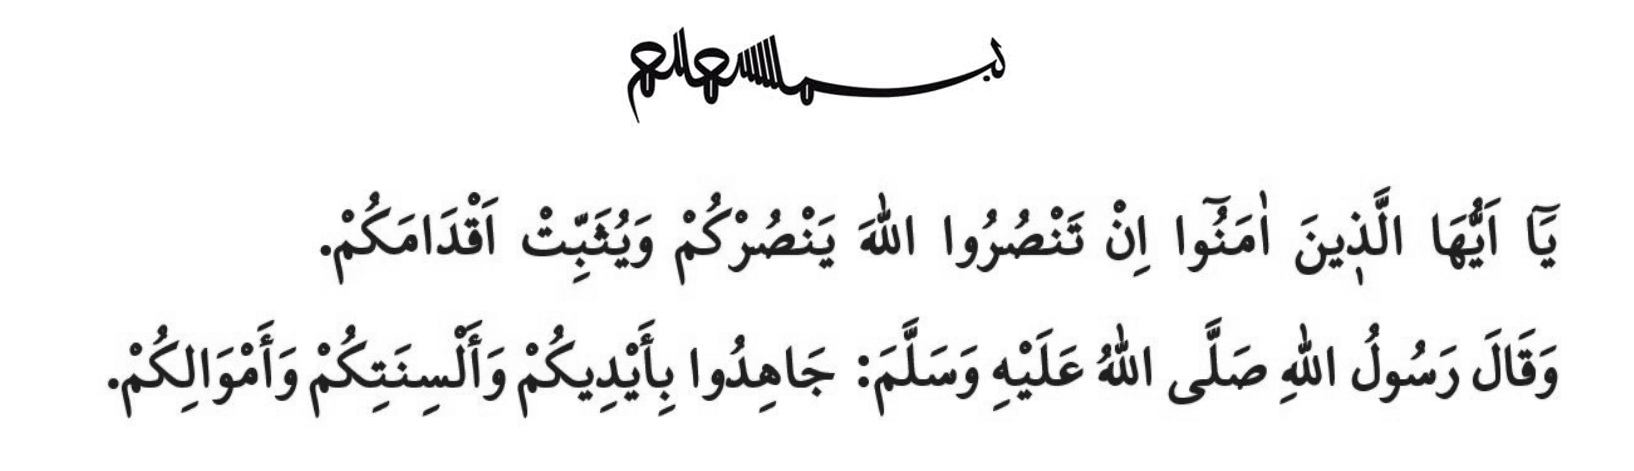 بسم الله الرحمن الرحيم
يَٓا اَيُّهَا الَّذ۪ينَ اٰمَنُٓوا اِنْ تَنْصُرُوا اللّٰهَ يَنْصُرْكُمْ وَيُثَبِّتْ اَقْدَامَكُمْ.
وَقَالَ رَسُولُ اللّٰهِ صَلَّى اللّٰهُ عَلَيْهِ وَسَلَّمَ: جَاهِدُوا بِأَيْدِيكُمْ وَأَلْسِنَتِكُمْ وَأَمْوَالِكُمْ.